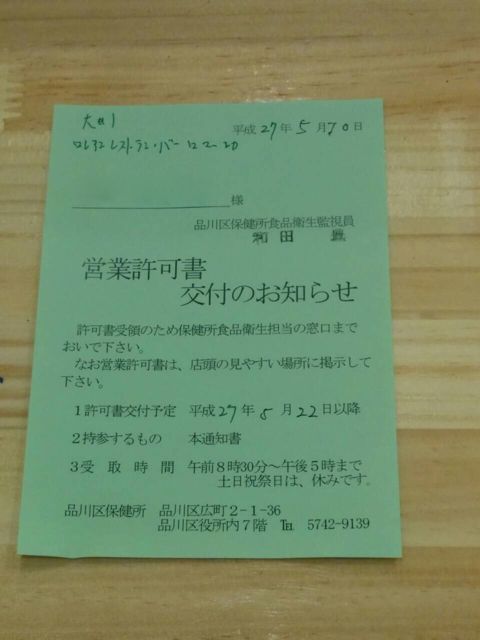 平成27年5月20日
様
品川区保健所食品衛生監視員
和田
営業許可書
交付のお知らせ
許可書受領のため保健所食品衛生担当の窓口まで
おいで下さい。
なお営業許可書は、店頭の見やすい場所に掲示して
下さい。
1許可書交付予定 平成27年5月22日以降
2持参するもの 本通知書
3受取時間 午前8時30分～午後5時まで
土日祝祭日は、休みです。
品川区保健所 品川区広町2-1-36
品川区役所内7階 ℡ 5742-9139